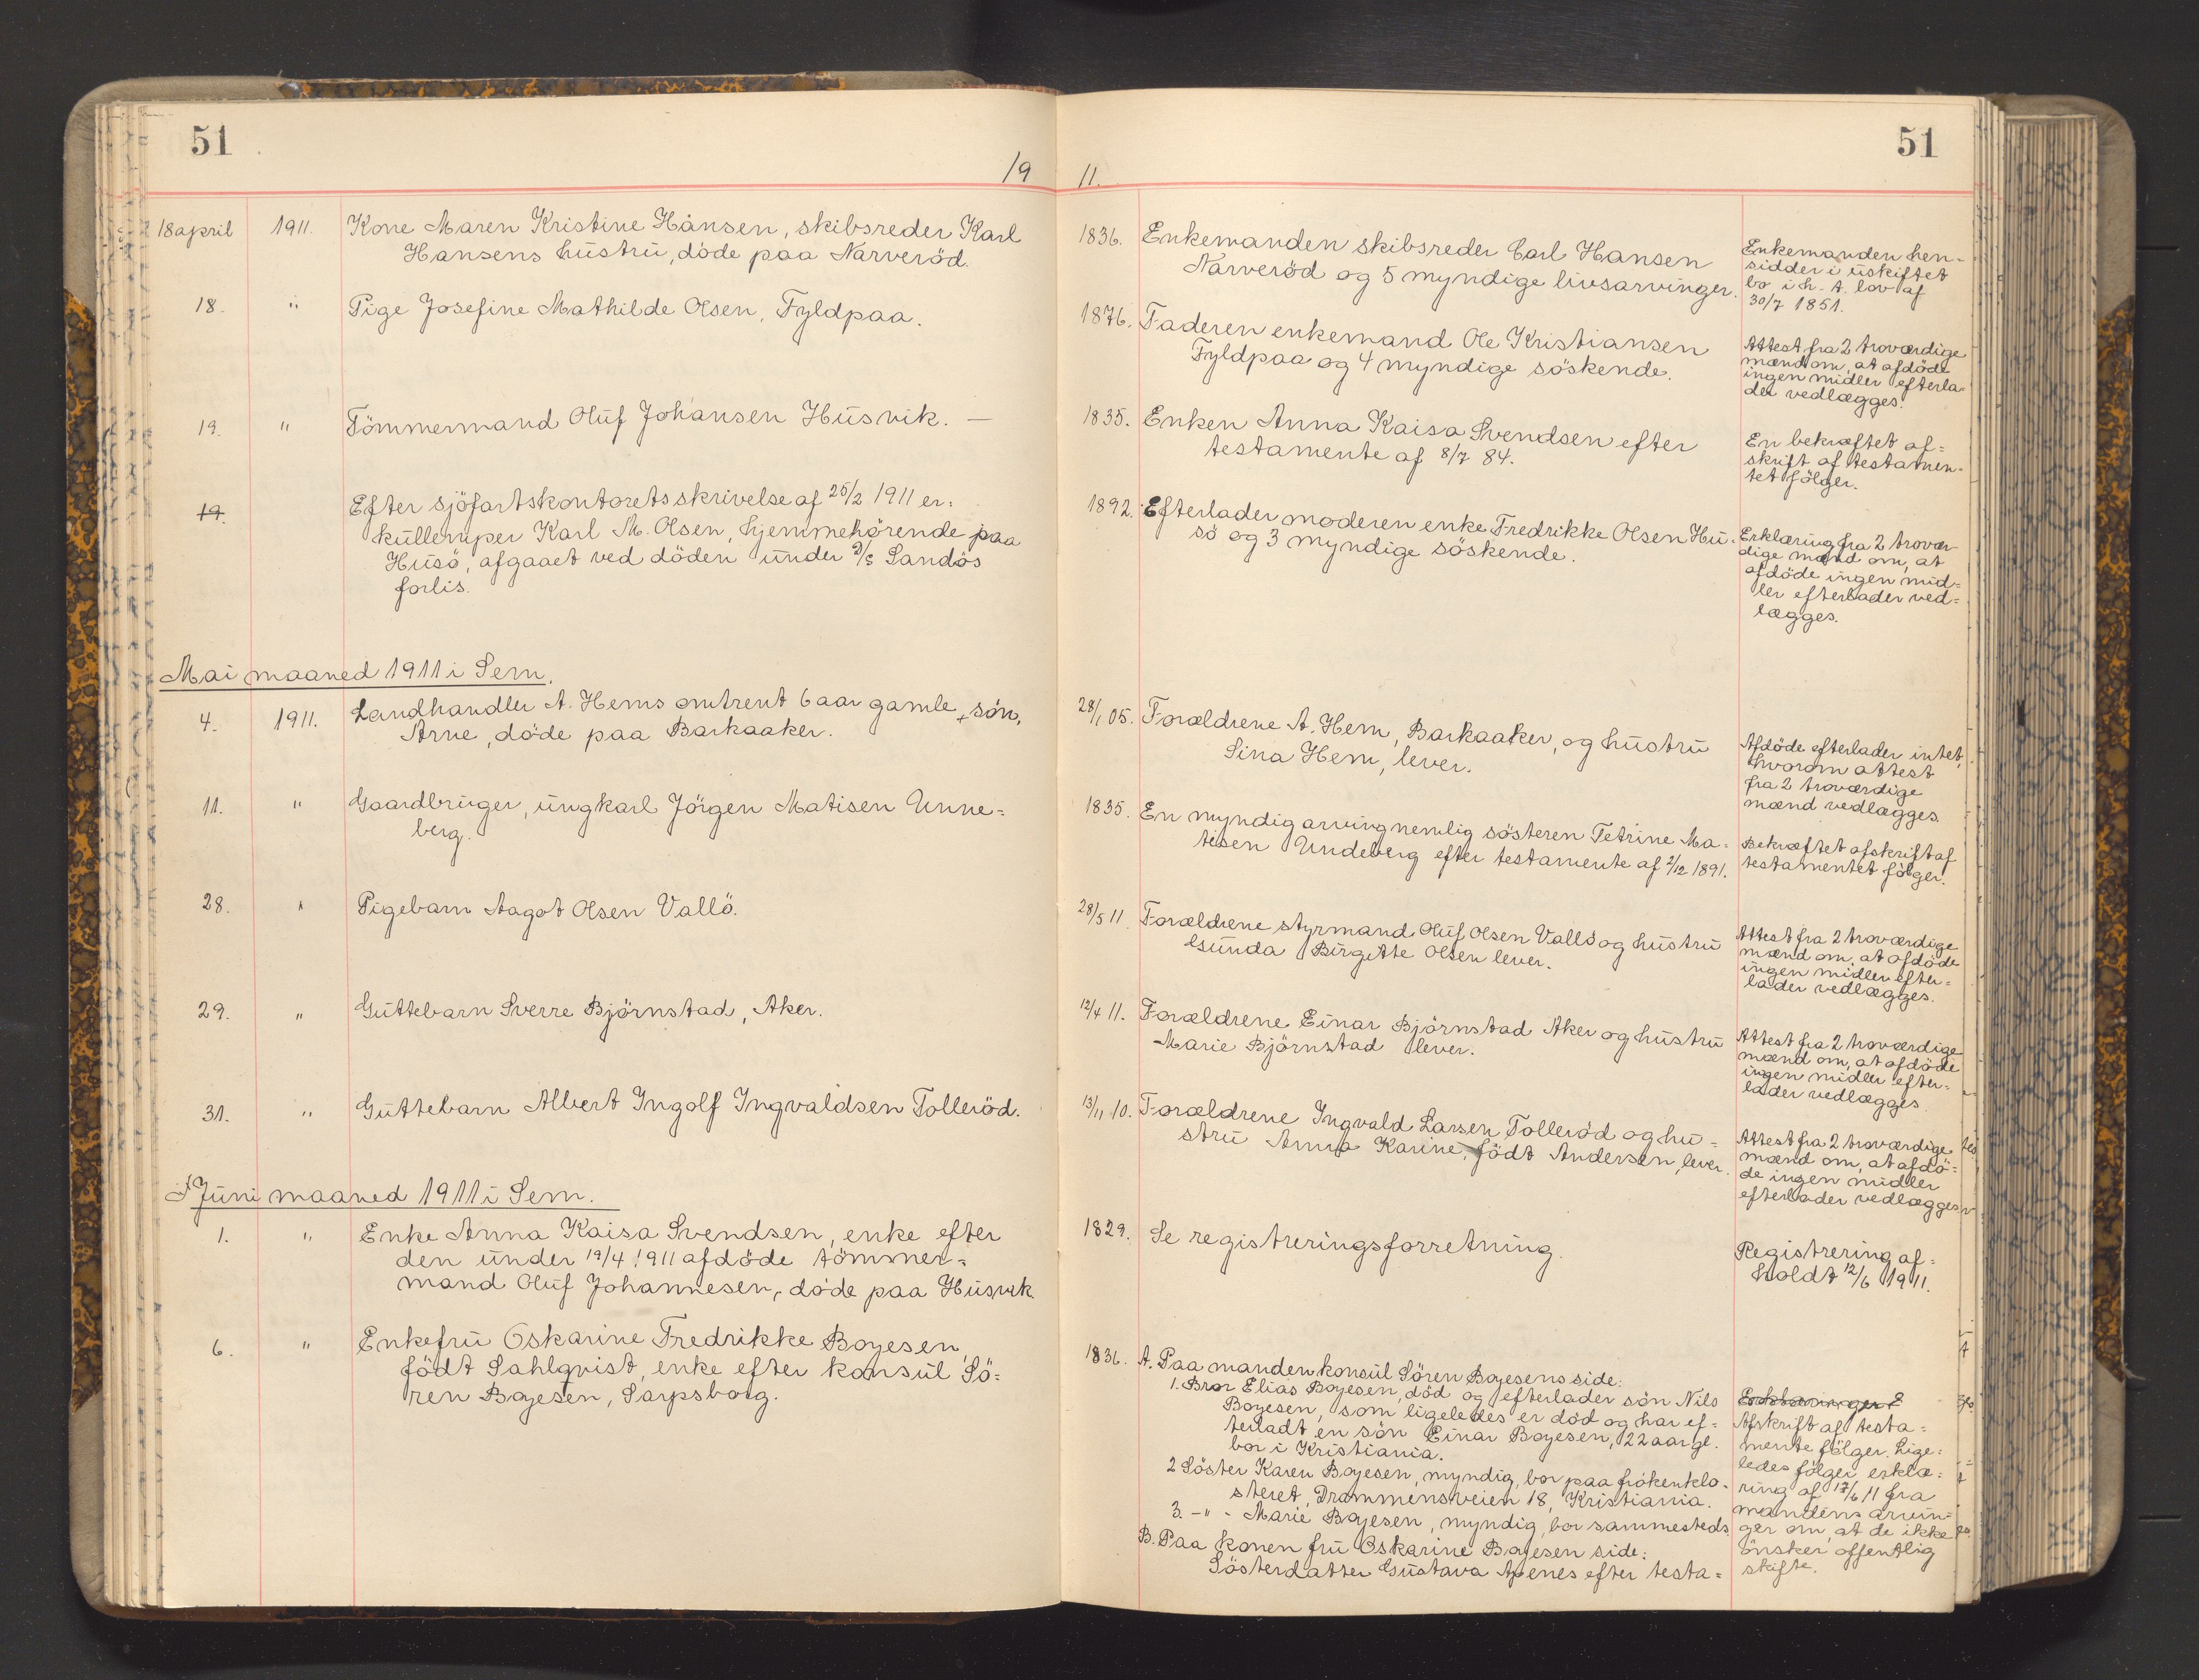 51
51
19 11.
18 april 1911. Kone Maren Kristine Hansen, skibsreder Karl
Hansens hustru, döde paa Narveröd.
1836. Enkemanden skibsreder Carl Hansen
Narveröd og 5 myndige livsarvinger.
Enkemanden hen-
sidder i uskiftet
bo i h. t. lov af
30/7 1851.
18. " Pige Josefine Mathilde Olsen, Fyldpaa.
1876. Faderen enkemand Ole Kristiansen
Fyldpaa og 4 myndige söskende.
Attest fra 2 troværdige
mænd om, at afdöde
ingen midler efterla-
der vedlægges.
19. " Tömmermand Oluf Johansen Husvik. —
1835. Enken Anna Kaisa Svendsen efter
testamente af 8/7 84.
En bekræftet af=
skrift af testamen-
tet fölger.
19. Efter sjöfartskontorets skrivelse af 25/2 1911 er:
kullemper Karl M. Olsen, hjemmehörende paa
Husö, afgaaet ved döden under D/S Sandös
forlis.
1892. Efterlader moderen enke Fredrikke Olsen Hu-
sö og 3 myndige söskende.
Erklæring fra 2 trovær-
dige mænd om, at
afdöde ingen mid=
ler efterlader ved=
lægges.
Mai maaned 1911 i Sem.
4. 1911. Landhandler A. Hems omtrent 6 aar gamle sön,
Arne, döde paa Barkaaker.
28/1 05. Forældrene A. Hem, Barkaaker, og hustru
Sina Hem, lever.
Afdöde efterlader intet,
hvorom attest
fra 2 troværdige
mænd vedlægges.
11. " Gaardbruger, ungkarl Jörgen Matisen Unne=
berg.
1835. En myndig arving nemlig sösteren Tetrine Ma=
tisen Undeberg efter testamente af 2/12 1891.
Bekræftet afskrift af
testamentet fölger.
28. " Pigebarn Aagot Olsen Vallö.
28/5 11. Forældrene styrmand Oluf Olsen Vallö og hustru
Gunda Birgitte Olsen lever.
Attest fra 2 troværdige
mænd om, at afdöde
ingen midler efter=
lader vedlægges.
29. " Guttebarn Sverre Björnstad, Aker.
12/4 11. Forældrene Einar Björnstad Aker og hustru
Marie Björnstad lever.
Attest fra 2 troværdige
mænd om, at afdöde
ingen midler efter=
lader vedlægges.
31. " Guttebarn Albert Ingolf Ingvaldsen Tolleröd.
13/11 10. Forældrene Ingvald Larsen Tolleröd og hu=
stru Anna Karine, födt Andersen, lever.
Attest fra 2 troværdige
mænd om, at afdö=
de ingen midler
efterlader vedlægges
Juni maaned 1911 i Sem.
1. " Enke Anna Kaisa Svendsen, enke efter
den under 19/4 1911 afdöde tömmer=
mand Oluf Johannesen, döde paa Husvik.
1829. Se registreringsforretning.
Registrering af=
holdt 12/6 1911.
6. " Enkefru Oskarine Fredrikke Boyesen,
födt Sahlqvist, enke efter konsul Sö=
ren Boyesen, Sarpsborg.
1836. A. Paa manden konsul Sören Boyesens side:
1. Bror Elias Boyesen, död og efterlader sön Nils
Boyesen, som ligeledes er död og har ef=
terladt en sön Einar Boyesen, 22 aar gl.
bor i Kristiania.
2 Söster Karen Boyesen, myndig, bor paa frökenklo-
steret, Drammensveien 18, Kristiania.
3. -"- Marie Boyesen, myndig, bor sammesteds.
B. Paa konen fru Oskarine Boyesen side:
Sösterdatter Gustava Apenes efter testa=
Erklæringer E
Afskrift af testa=
mente fölger. Lige=
ledes fölger erklæ=
ring af 17/6 11 fra
mandens arvin=
ger om, at de ikke
önsker offentlig
skifte.